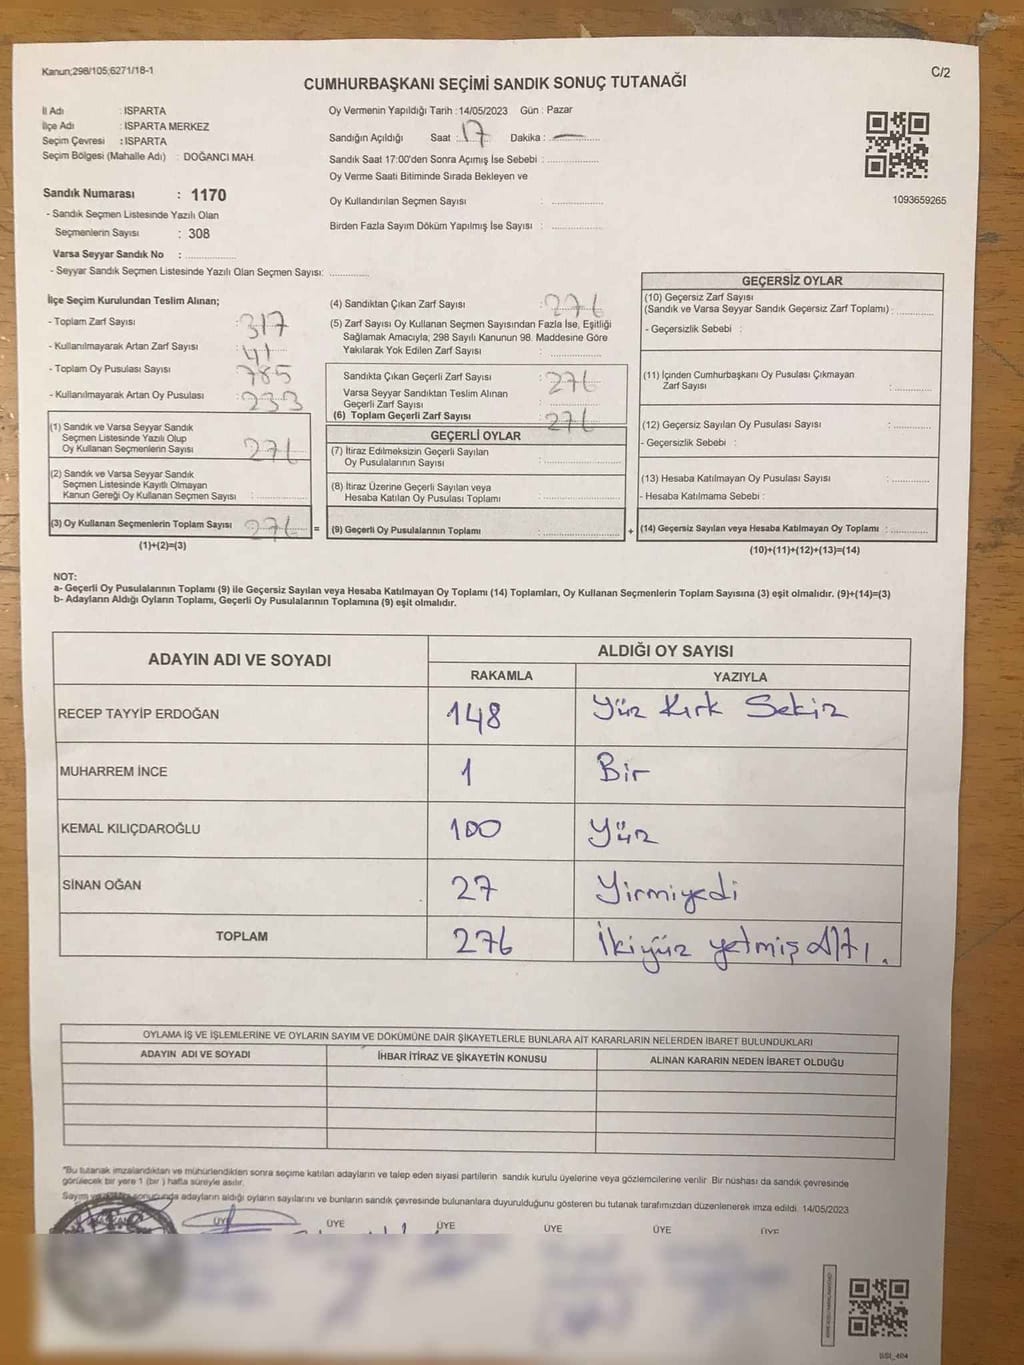 Kanun;298/105;6271/18-1
C/2
CUMHURBAŞKANI SEÇİMİ SANDIK SONUÇ TUTANAĞI
İl Adı : ISPARTA
İlçe Adı : ISPARTA MERKEZ
Seçim Çevresi : ISPARTA
Seçim Bölgesi (Mahalle Adı) : DOĞANCI MAH.
Sandık Numarası : 1170
- Sandık Seçmen Listesinde Yazılı Olan
Seçmenlerin Sayısı : 308
Varsa Seyyar Sandık No :
- Seyyar Sandık Seçmen Listesinde Yazılı Olan Seçmen Sayısı:
Oy Vermenin Yapıldığı Tarih : 14/05/2023 Gün : Pazar
Sandığın Açıldığı Saat : 17 Dakika : —
Sandık Saat 17:00'den Sonra Açımış İse Sebebi :
Oy Verme Saati Bitiminde Sırada Bekleyen ve
Oy Kullandırılan Seçmen Sayısı :
Birden Fazla Sayım Döküm Yapılmış İse Sayısı :
1093659265
İlçe Seçim Kurulundan Teslim Alınan;
- Toplam Zarf Sayısı : 317
- Kullanılmayarak Artan Zarf Sayısı : 41
- Toplam Oy Pusulası Sayısı : 785
- Kullanılmayarak Artan Oy Pusulası : 233
(1) Sandık ve Varsa Seyyar Sandık
Seçmen Listesinde Yazılı Olup
Oy Kullanan Seçmenlerin Sayısı 276
(2) Sandık ve Varsa Seyyar Sandık
Seçmen Listesinde Kayıtlı Olmayan
Kanun Gereği Oy Kullanan Seçmen Sayısı :
(3) Oy Kullanan Seçmenlerin Toplam Sayısı 276 =
(1)+(2)=(3)
(4) Sandıktan Çıkan Zarf Sayısı : 276
(5) Zarf Sayısı Oy Kullanan Seçmen Sayısından Fazla İse, Eşitliği
Sağlamak Amacıyla, 298 Sayılı Kanunun 98. Maddesine Göre
Yakılarak Yok Edilen Zarf Sayısı :
Sandıkta Çıkan Geçerli Zarf Sayısı : 276
Varsa Seyyar Sandıktan Teslim Alınan
Geçerli Zarf Sayısı :
(6) Toplam Geçerli Zarf Sayısı : 276
GEÇERLİ OYLAR
(7) İtiraz Edilmeksizin Geçerli Sayılan
Oy Pusulalarının Sayısı :
(8) İtiraz Üzerine Geçerli Sayılan veya
Hesaba Katılan Oy Pusulası Toplamı :
(9) Geçerli Oy Pusulalarının Toplamı : +
GEÇERSİZ OYLAR
(10) Geçersiz Zarf Sayısı
(Sandık ve Varsa Seyyar Sandık Geçersiz Zarf Toplamı) :
- Geçersizlik Sebebi :
(11) İçinden Cumhurbaşkanı Oy Pusulası Çıkmayan
Zarf Sayısı :
(12) Geçersiz Sayılan Oy Pusulası Sayısı :
- Geçersizlik Sebebi :
(13) Hesaba Katılmayan Oy Pusulası Sayısı :
- Hesaba Katılmama Sebebi :
(14) Geçersiz Sayılan veya Hesaba Katılmayan Oy Toplamı :
(10)+(11)+(12)+(13)=(14)
NOT:
a- Geçerli Oy Pusulalarının Toplamı (9) ile Geçersiz Sayılan veya Hesaba Katılmayan Oy Toplamı (14) Toplamları, Oy Kullanan Seçmenlerin Toplam Sayısına (3) eşit olmalıdır. (9)+(14)=(3)
b- Adayların Aldığı Oyların Toplamı, Geçerli Oy Pusulalarının Toplamına (9) eşit olmalıdır.
ADAYIN ADI VE SOYADI ALDIĞI OY SAYISI
RAKAMLA YAZIYLA
RECEP TAYYİP ERDOĞAN 148 Yüz Kırk Sekiz
MUHARREM İNCE 1 Bir
KEMAL KILIÇDAROĞLU 100 Yüz
SİNAN OĞAN 27 Yirmiyedi
TOPLAM 276 İkiyüz yetmiş Altı.
OYLAMA İŞ VE İŞLEMLERİNE VE OYLARIN SAYIM VE DÖKÜMÜNE DAİR ŞİKAYETLERLE BUNLARA AİT KARARLARIN NELERDEN İBARET BULUNDUKLARI
ADAYIN ADI VE SOYADI İHBAR İTİRAZ VE ŞİKAYETİN KONUSU ALINAN KARARIN NEDEN İBARET OLDUĞU
"Bu tutanak imzalandıktan ve mühürlendikten sonra seçime katılan adayların ve talep eden siyasi partilerin sandık kurulu üyelerine veya gözlemcilerine verilir. Bir nüshası da sandık çevresinde
görülecek bir yere 1 (bir) hafta süreyle asılır.
Sayım sonucunda adayların aldığı oyların sayılarını ve bunların sandık çevresinde bulunanlara duyurulduğunu gösteren bu tutanak tarafımızdan düzenlenerek imza edildi. 14/05/2023
ÜYE ÜYE ÜYE ÜYE ÜYE ÜYE